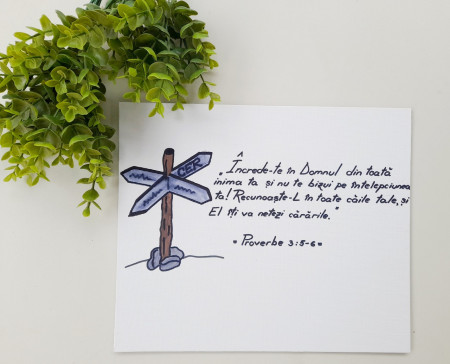 CER
„Încrede-te în Domnul din toată
inima ta și nu te bizui pe înțelepciunea
ta! Recunoaște-L în toate căile tale, și
El îți va netezi cărările."
- Proverbe 3:5-6 -